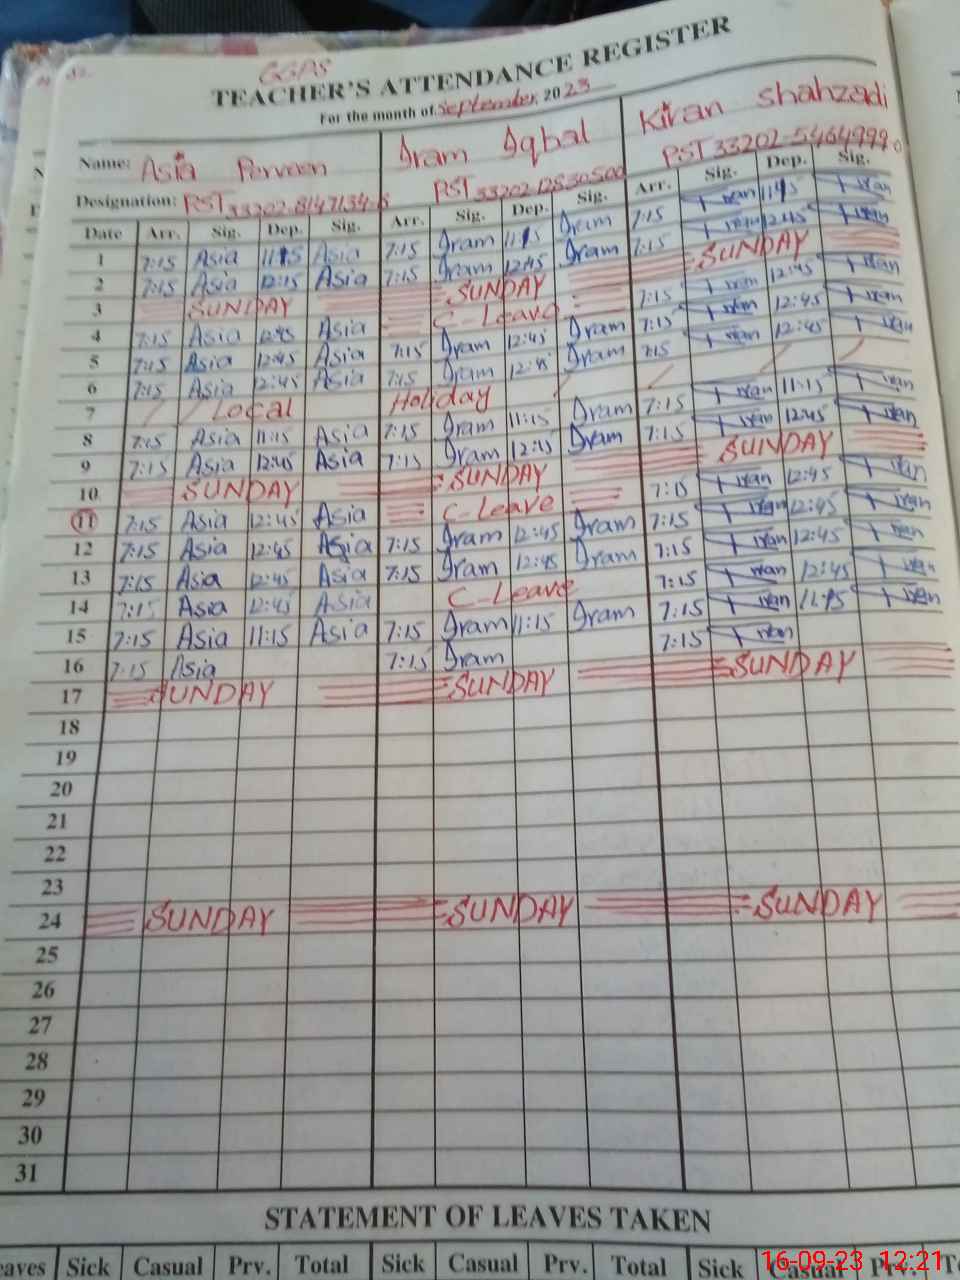 GGPS
TEACHER'S ATTENDANCE REGISTER
For the month of September, 2023
Name: Asia Parveen Iram Iqbal Kiran Shahzadi
Designation: PST PST 33202 PST 33202-5464999-0
Date Arr. Sig. Dep. Sig. Arr. Sig. Dep. Sig. Arr. Sig. Dep. Sig.
1 7:15 Asia 11:15 Asia 7:15 Iram 11:15 Iram 7:15 Kiran 11:15 Kiran
2 7:15 Asia 12:15 Asia 7:15 Iram 12:45 Iram 7:15 Kiran 12:45 Kiran
3 SUNDAY SUNDAY SUNDAY
4 7:15 Asia 12:45 Asia C-Leave 7:15 Kiran 12:45 Kiran
5 7:15 Asia 12:45 Asia 7:15 Iram 12:45 Iram 7:15 Kiran 12:45 Kiran
6 7:15 Asia 12:45 Asia 7:15 Iram 12:45 Iram 7:15 Kiran 12:45 Kiran
7 Local Holiday
8 7:15 Asia 11:15 Asia 7:15 Iram 11:15 Iram 7:15 Kiran 11:15 Kiran
9 7:15 Asia 12:45 Asia 7:15 Iram 12:45 Iram 7:15 Kiran 12:45 Kiran
10 SUNDAY SUNDAY SUNDAY
11 7:15 Asia 12:45 Asia C-Leave 7:15 Kiran 12:45 Kiran
12 7:15 Asia 12:45 Asia 7:15 Iram 12:45 Iram 7:15 Kiran 12:45 Kiran
13 7:15 Asia 12:45 Asia 7:15 Iram 12:45 Iram 7:15 Kiran 12:45 Kiran
14 7:15 Asia 12:45 Asia C-Leave 7:15 Kiran 12:45 Kiran
15 7:15 Asia 11:15 Asia 7:15 Iram 11:15 Iram 7:15 Kiran 11:15 Kiran
16 7:15 Asia 7:15 Iram 7:15 Kiran
17 SUNDAY SUNDAY SUNDAY
18
19
20
21
22
23
24 SUNDAY SUNDAY SUNDAY
25
26
27
28
29
30
31
STATEMENT OF LEAVES TAKEN
eaves Sick Casual Prv. Total Sick Casual Prv. Total Sick Casual Prv.
16-09-23 12:21